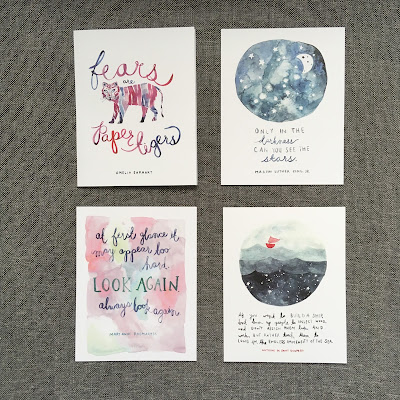 fears
are
Paper tigers
AMELIA EARHART
ONLY IN THE
darkness
CAN YOU SEE THE
stars.
MARTIN LUTHER KING, JR.
at first glance it
may appear too
hard.
LOOK AGAIN.
always look
again.
If you want to BUILD A SHIP
don't drum up people to collect wood
and DON'T ASSIGN them TASKS AND
work, BUT RATHER teach them to
LONG for the ENDLESS IMMENSITY OF THE SEA.